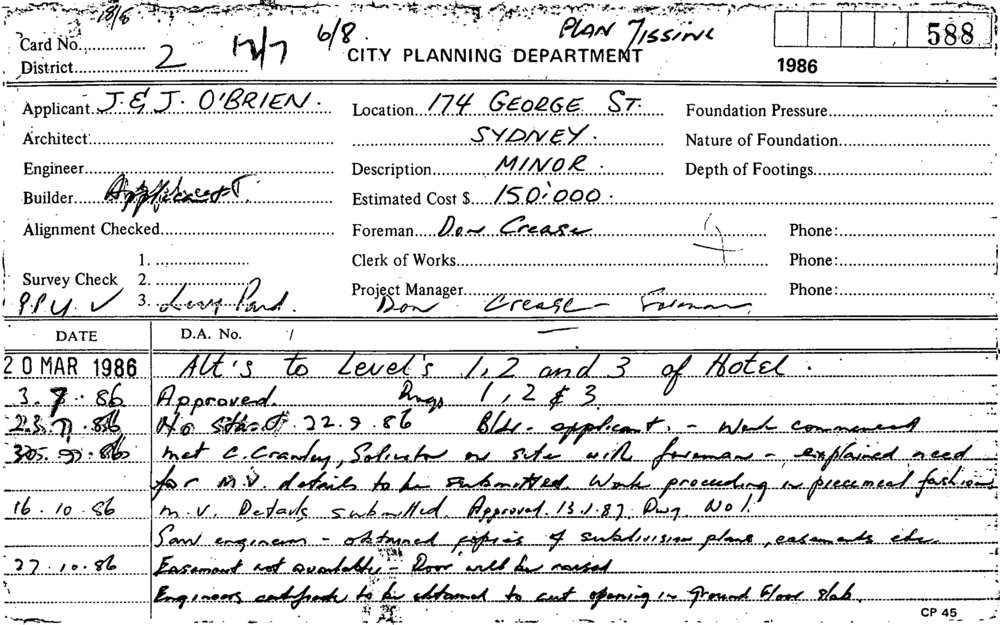 18/8
Card No. 6/8. PLAN MISSING 588
District 2 17/7 CITY PLANNING DEPARTMENT 1986
Applicant J. & J. O'BRIEN. Location 174 GEORGE ST. Foundation Pressure
Architect SYDNEY. Nature of Foundation
Engineer Description MINOR. Depth of Footings
Builder Applicant. Estimated Cost $ 150:000.
Alignment Checked Foreman Don Crease Phone:
1. Clerk of Works Phone:
Survey Check 2. Project Manager Phone:
3. Don Crease - Foreman
DATE D.A. No.
20 MAR 1986 Alt's to Level's 1, 2 and 3 of Hotel.
3. 7. 86 Approved. Dwgs 1, 2 & 3
No start. 22.9.86 Bldr. applicant. - Work commenced
met C. Cranley, Solicitor on site with foreman - explained need
for M.V. details to be submitted. Work proceeding in piecemeal fashion
16.10.86 M.V. Details submitted. Approved. 13.1.87. Dwg No 1.
Saw engineer - obtained copies of subdivision plans, easements etc.
27.10.86 Easement not available - Door will be raised
Engineers certificate to be obtained to cut opening in Ground Floor slab.
CP 45